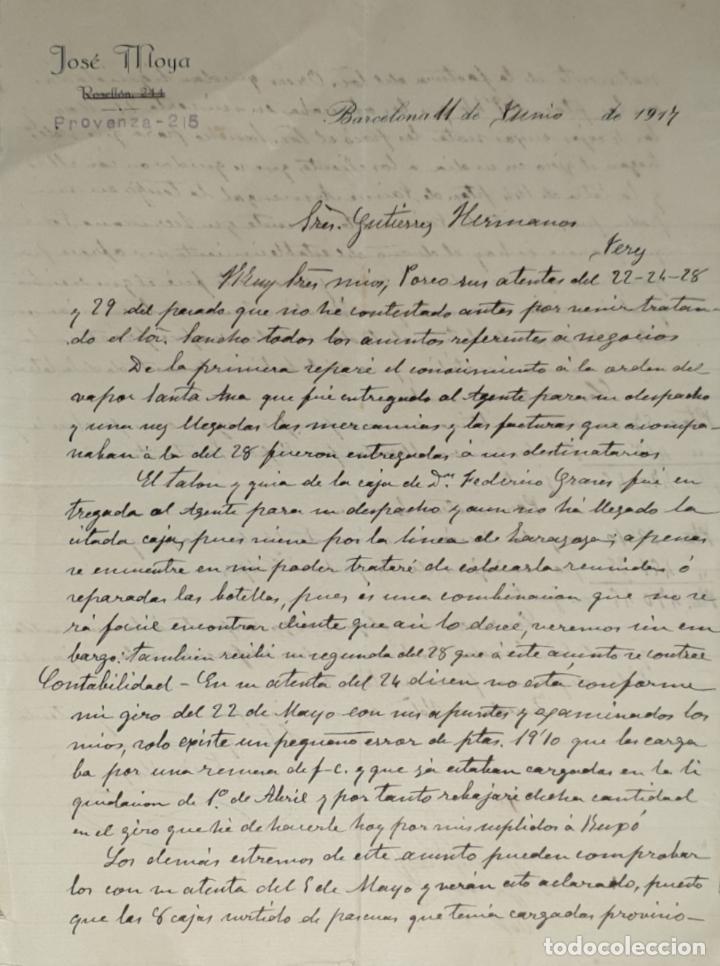 José Moya
Rosellón, 244
Provenza-215
Barcelona 11 de Junio de 1917
Sres. Gutiérrez Hermanos
Jerez
Muy Sres mios, Poseo sus atentas del 22-24-28
y 29 del pasado que no hé contestado antes por venir tratan-
do el Sor. Sancho todos los asuntos referentes á negocios
De la primera separé el conocimiento á la orden del
vapor Santa Ana que fué entregado al Agente para su despacho
y una vez llegadas las mercancias y las facturas que acompa-
ñaban á la del 28 fueron entregadas á sus destinatarios
El talon y guia de la caja de Dn Federico Grases fué en
tregada al Agente para su despacho y aun no há llegado la
citada caja, pues viene por la linea de Zaragoza; apenas
se encuentre en mi poder trataré de colocarla reunidas ó
separadas las botellas, pues és una combinacion que no se
rá facil encontrar cliente que asi lo deseé, veremos sin em
bargo: tambien recibi su segunda del 28 que á este asunto se contrae
Contabilidad - En su atenta del 24 dicen no está conforme
mi giro del 22 de Mayo con sus apuntes y examinados los
mios, solo existe un pequeño error de ptas. 19'10 que les carga
ba por una remesa de f-c. y que ya estaban cargadas en la li
quidacion de 1º de Abril y por tanto rebajaré dicha cantidad
en el giro que hé de hacerle hoy por mis suplidos á
Los demás extremos de este asunto pueden comprobar
los con su atenta del 5 de Mayo y verán esto aclarado, puesto
que las 8 cajas surtido de pascuas que tenia cargadas proviso-
todocoleccion